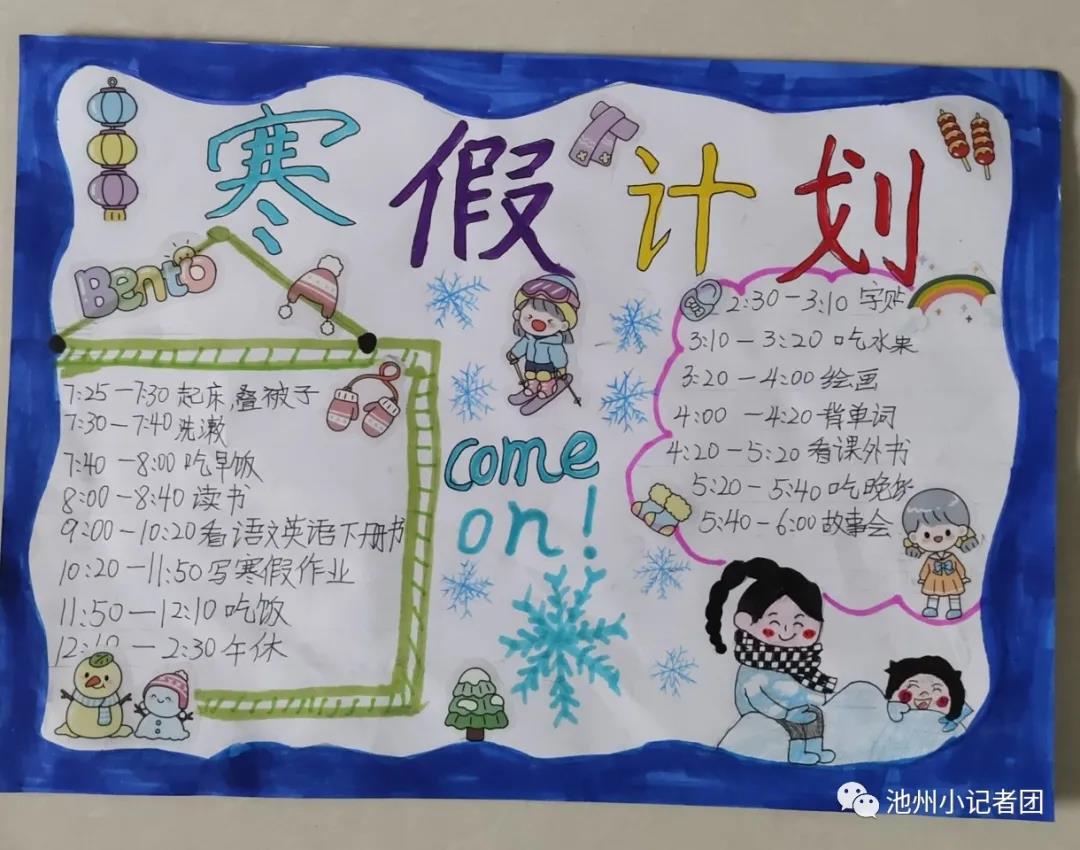 寒假计划
Bento
7:25—7:30 起床,叠被子
7:30—7:40 洗漱
7:40—8:00 吃早饭
8:00—8:40 读书
9:00—10:20 看语文英语下册书
10:20—11:50 写寒假作业
11:50—12:10 吃饭
12:10—2:30 午休
come
on!
2:30—3:10 字贴
3:10—3:20 吃水果
3:20—4:00 绘画
4:00—4:20 背单词
4:20—5:20 看课外书
5:20—5:40 吃晚饭
5:40—6:00 故事会
池州小记者团